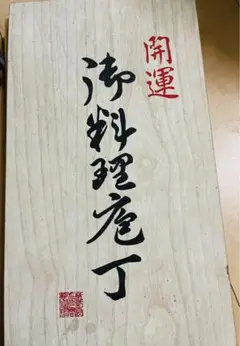 開運
御料理庖丁